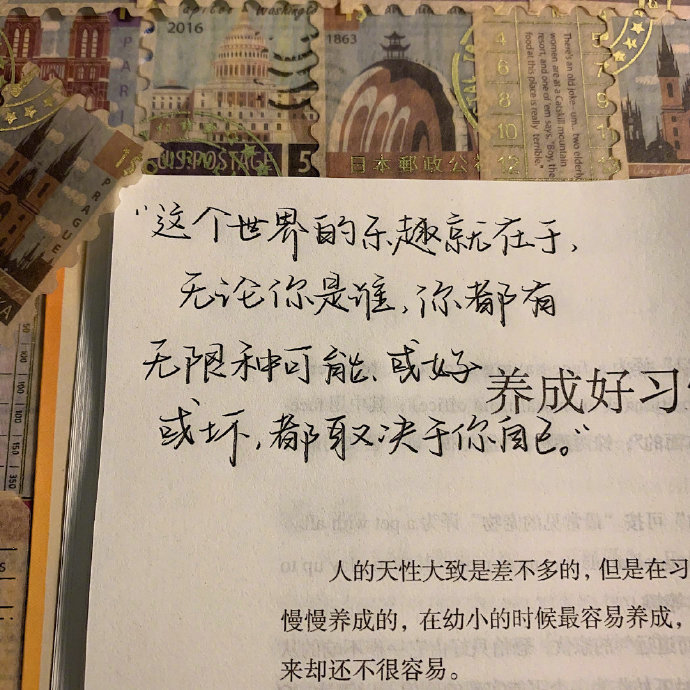 PARIS
2016
Washington
1863
POSTAGE
5
日本郵政公社
There's an old joke - um, two elderly
women are at a Catskill mountain
resort, and one of 'em says, "Boy, the
food at this place is really terrible."
4
5
6
7
8
9
10
11
12
PRAGUE
"这个世界的乐趣就在于,
无论你是谁,你都有
无限种可能、或好
或坏,都取决于你自己。"
养成好习
人的天性大致是差不多的，但是在习
慢慢养成的，在幼小的时候最容易养成，
来却还不很容易。
50
100
150
300
350